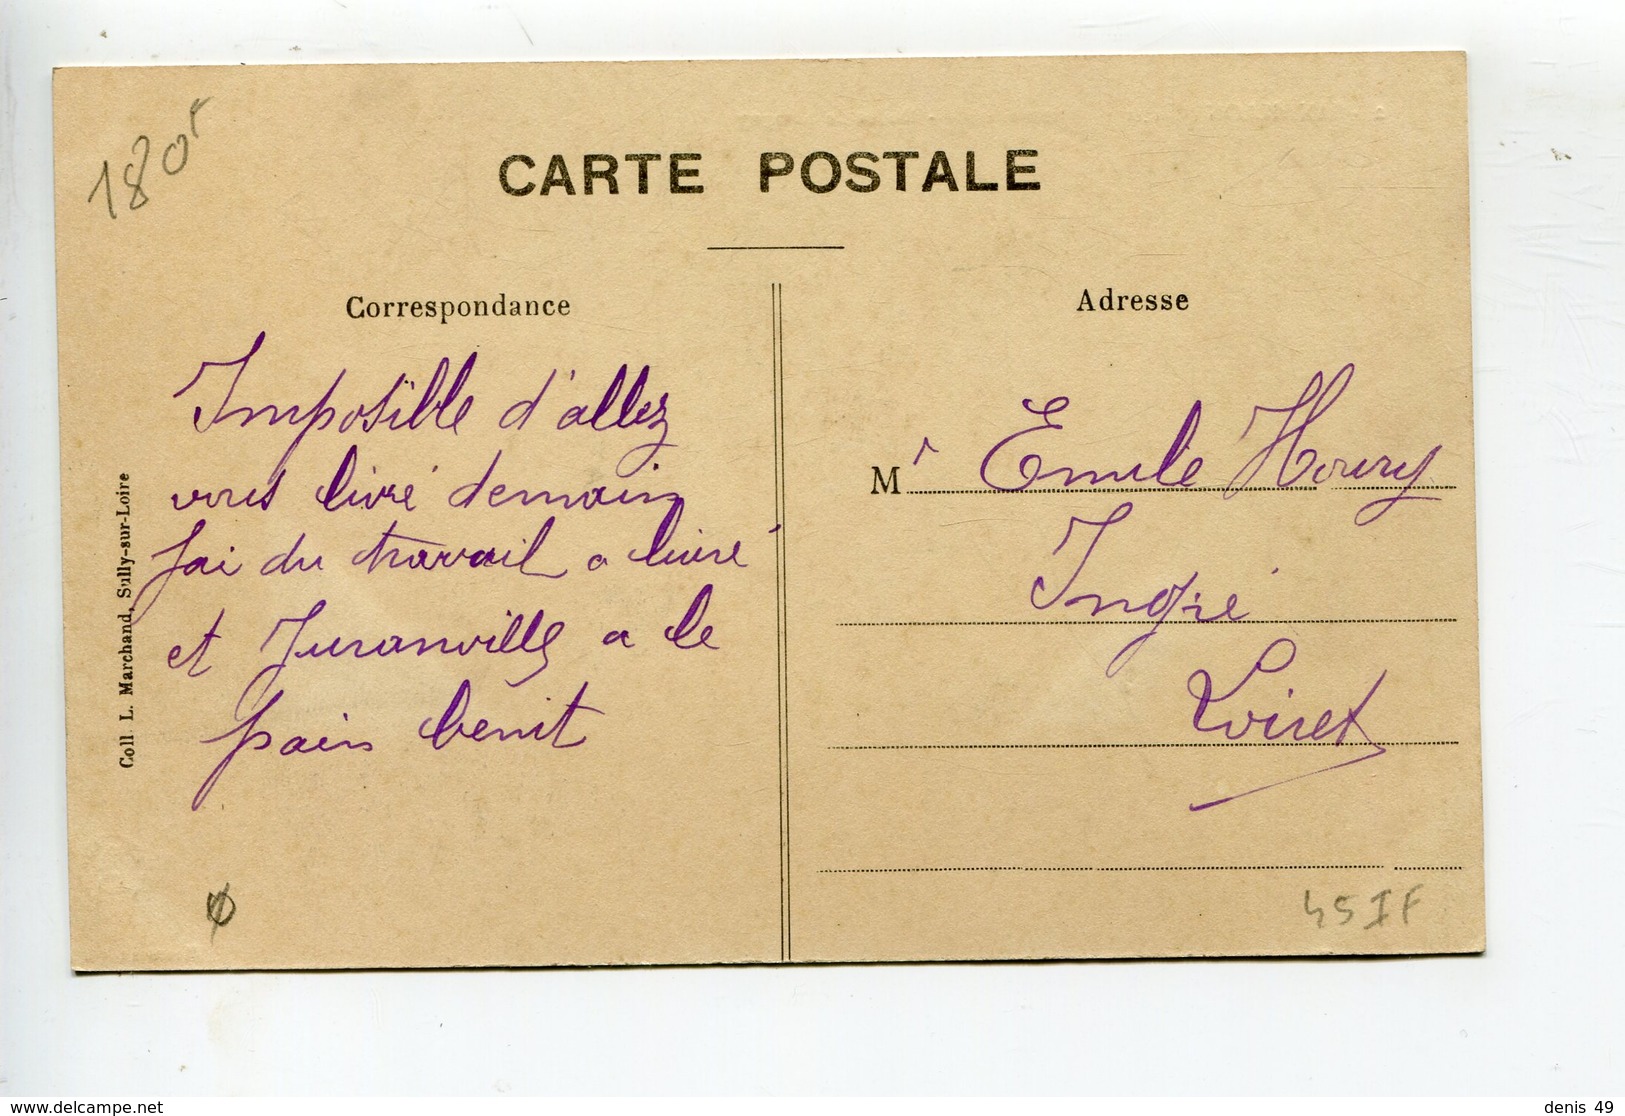 180F
CARTE POSTALE
Correspondance
Imposible d'allez
vous livré demain
Jai du travail a livré
et Juranville a le
pain benit
Coll. L. Marchand, Sully-sur-Loire
Adresse
M r Emile Houry
Ingré
Loiret
45 I F
www.delcampe.net
denis 49